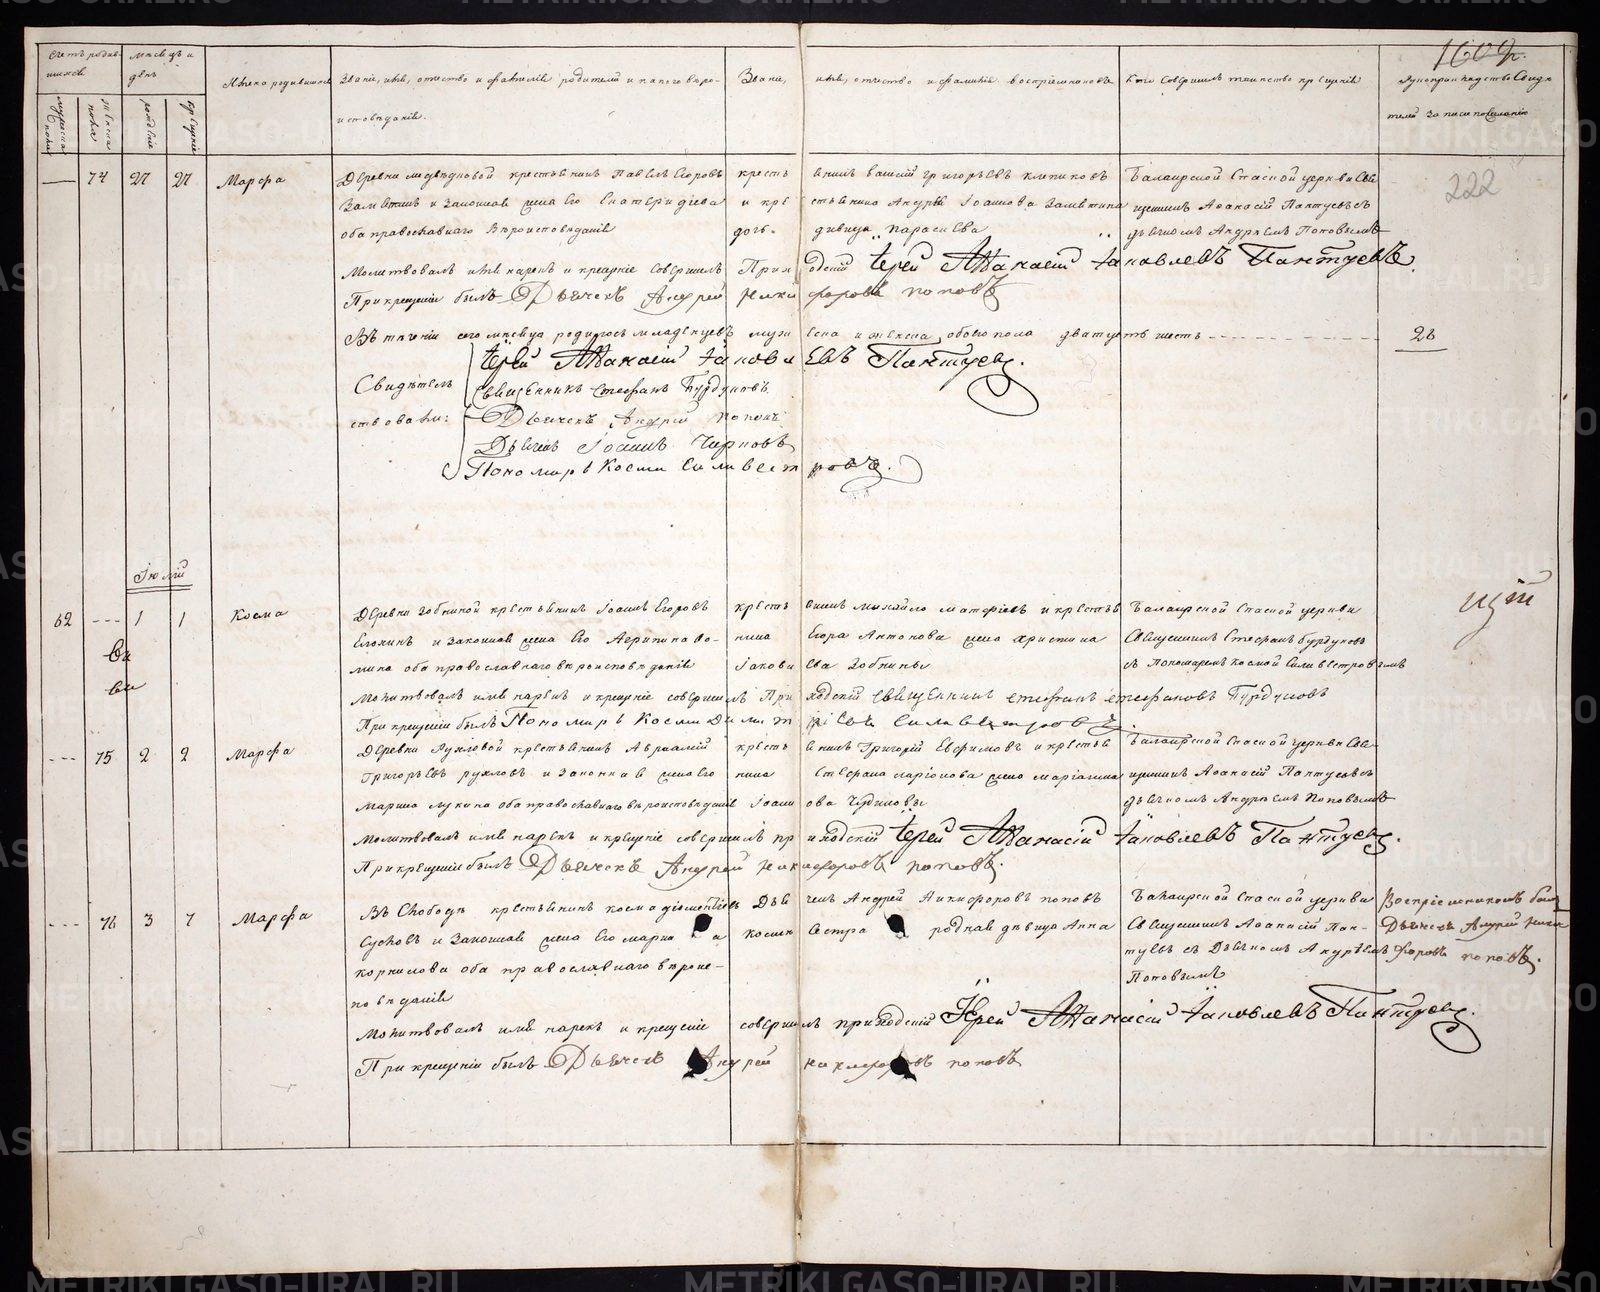 Счетъ родив-
шихся
Мѣсяцъ и
день
Имена родившихся
Званіе, имя, отчество и фамилія родителей и какого вѣро-
исповѣданія.
Званіе, имя, отчество и фамилія воспріемниковъ
Кто совершилъ таинство крещенія
Рукоприкладство свидѣ
телей записи по желанію
мужеска пола
женска пола
рожденія
крещенія
160
222
74 27 27 Марфа
Деревни Медвѣдковой крестьянинъ Павелъ Егоровъ
Замятинъ и законная жена его Екатерина
оба православнаго вѣроисповѣданія
крестьянинъ Василій Григорьевъ Клепиковъ
и крестьянина Андрея Іоаннова Замятина
дочь дѣвица Параскева
Балаирской Спасской церкви свя
щенникъ Аѳанасій Пантуевъ съ
дьячкомъ Андреемъ Поповымъ
Молитвовалъ имя нарекъ и крещеніе совершилъ Приходскій Іерей Аѳанасій Іаковлевъ Пантуевъ.
При крещеніи былъ Дьячекъ Андрей Никифоровъ Поповъ
Въ теченіи сего мѣсяца родилось младенцевъ мужеска и женска обоего пола двадцать шесть 26
Іерей Аѳанасій Іаковлевъ Пантуевъ.
Свидѣтель
Священникъ Стефанъ Бурдуковъ
ствовали:
Дьячекъ Андрей Поповъ
Дьячекъ Іоаннъ Черновъ
Пономарь Косма Силивестровъ.
Іюлій
62 1 1 Косма
Деревни Зобниной крестьянинъ Іоаннъ Егоровъ
и законная жена его Агрипина Ѳо-
мина оба православнаго вѣроисповѣданія
крестьянинъ Михайло Матфіевъ и крестья
нина Егора Антонова жена Христина
Іаковлева Зобнины
Балаирской Спасской церкви
Священникъ Стефанъ Бурдуковъ
съ Пономаремъ Космой Силивестровымъ
Молитвовалъ имя нарекъ и крещеніе совершилъ Приходскій Священникъ Стефанъ Стефановъ Бурдуковъ
При крещеніи былъ Пономарь Косма Димитріевъ Силивестровъ.
75 2 2 Марфа
Деревни Рухловой крестьянинъ Авраамій
Григорьевъ Рухловъ и законная жена его
Марина Лукина оба православнаго вѣроисповѣданія
крестьянинъ Григорій Евфимовъ и крестья
нина Стефана Ларіонова жена Маріамна
Іоаннова Чудиновы
Балаирской Спасской церкви свя
щенникъ Аѳанасій Пантуевъ съ
дьячкомъ Андреемъ Поповымъ
Молитвовалъ имя нарекъ и крещеніе совершилъ приходскій Іерей Аѳанасій Іаковлевъ Пантуевъ.
При крещеніи былъ Дьячекъ Андрей Никифоровъ Поповъ.
76 3 7 Марфа
Въ Слободѣ крестьянинъ Косма Діоментіевъ
Сусловъ и законная жена его Марина
Корнилова оба православнаго вѣроис-
повѣданія
Дьячекъ Андрей Никифоровъ Поповъ
Космы сестра родная дѣвица Анна
Балаирской Спасской церкви
Священникъ Аѳанасій Пан-
туевъ съ Дьячкомъ Андреемъ
Поповымъ
Воспріемникомъ былъ
Дьячекъ Андрей Ники
форовъ Поповъ.
Молитвовалъ имя нарекъ и крещеніе совершилъ приходскій Іерей Аѳанасій Іаковлевъ Пантуевъ.
При крещеніи былъ Дьячекъ Андрей Никифоровъ Поповъ
METRIKI.GASO-URAL.RU